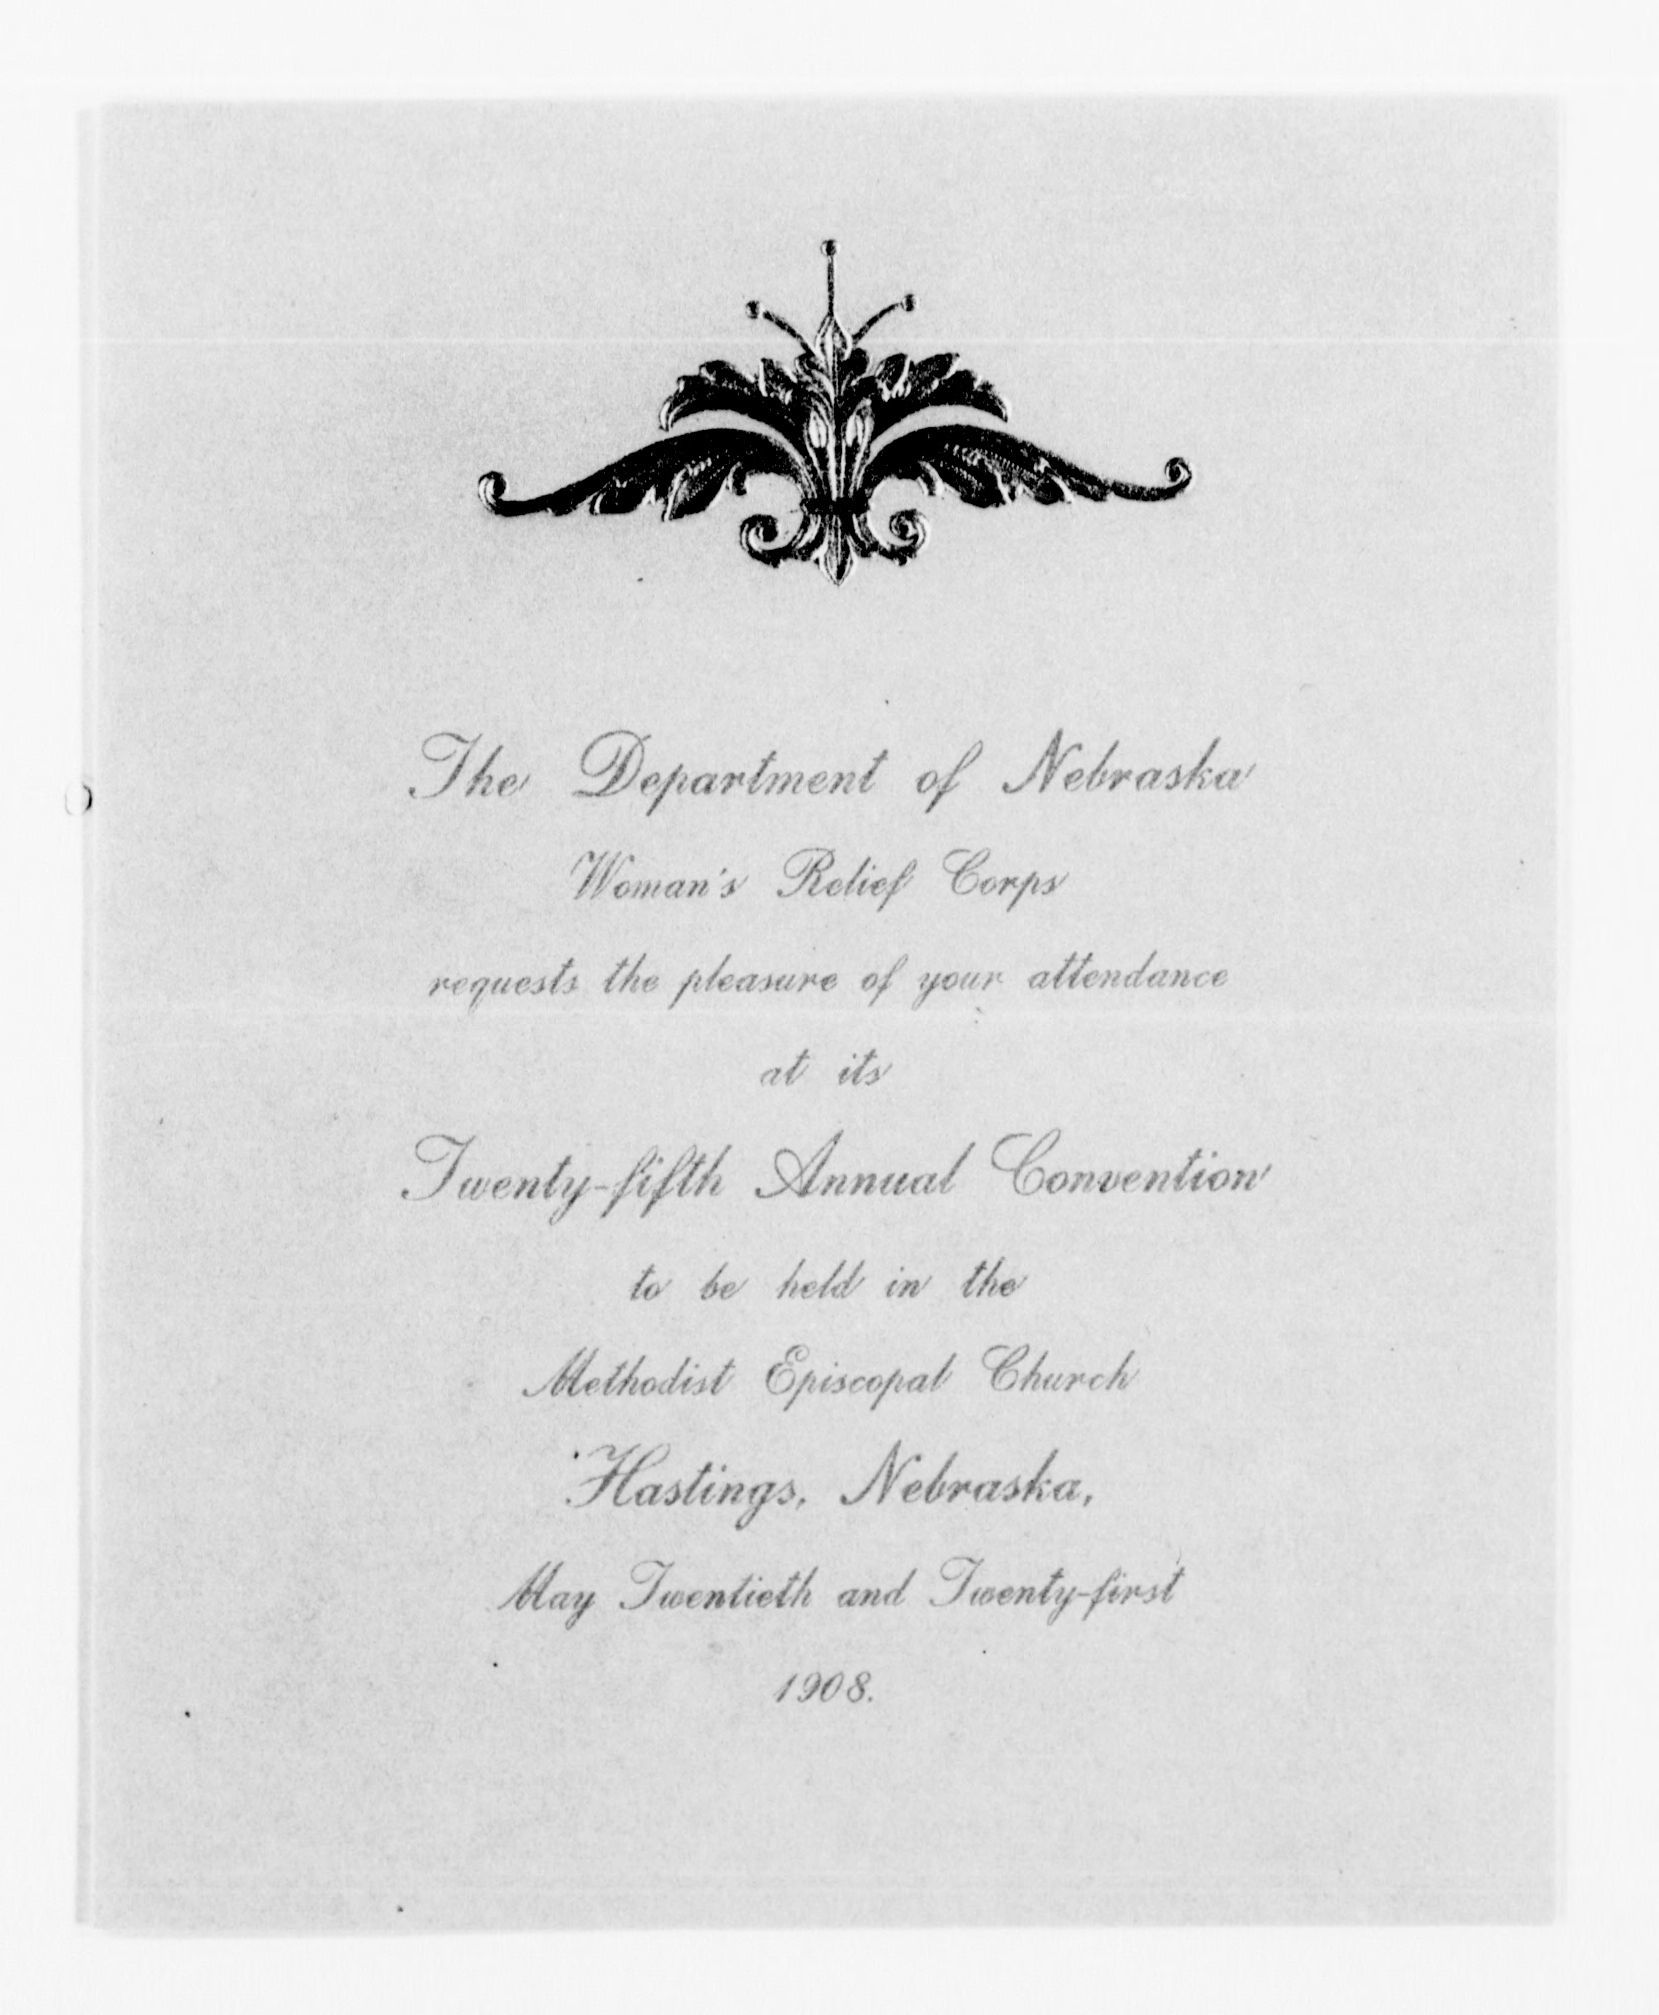 The Department of Nebraska
Woman's Relief Corps
requests the pleasure of your attendance
at its
Twenty-fifth Annual Convention
to be held in the
Methodist Episcopal Church
Hastings, Nebraska,
May Twentieth and Twenty-first
1908.